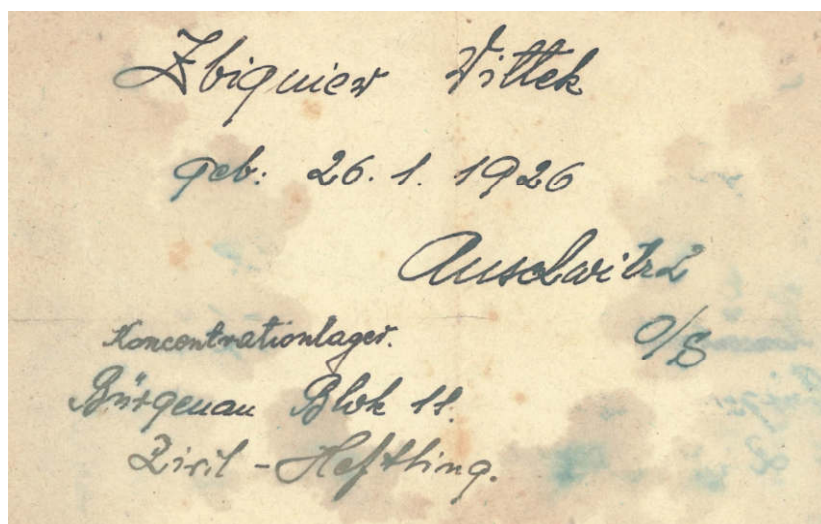 Zbigniew Wittek
geb: 26. 1. 1926
Auschwitz
O/S
Koncentrationlager.
Bürgenau Blok 11.
Zivil - Heftling.